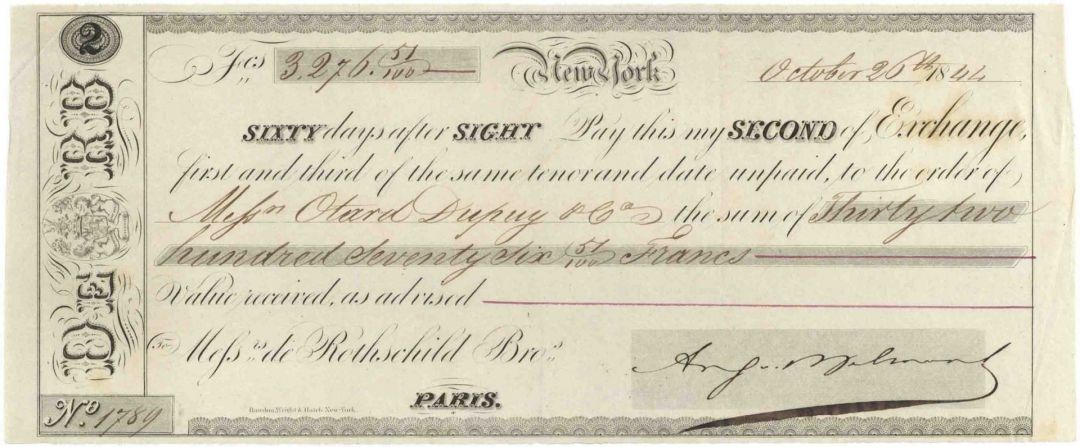 2
DE RB
Fcs 3,276. 51/100 New York October 26th 1844
SIXTY days after SIGHT Pay this my SECOND of Exchange,
first and third of the same tenor and date unpaid, to the order of
Messrs Otard Dupuy & Co the sum of Thirty two
hundred seventy six 51/100 Francs
Value received, as advised
To Messrs de Rothschild Bros
PARIS.
No. 1789
Rawdon, Wright & Hatch New-York.